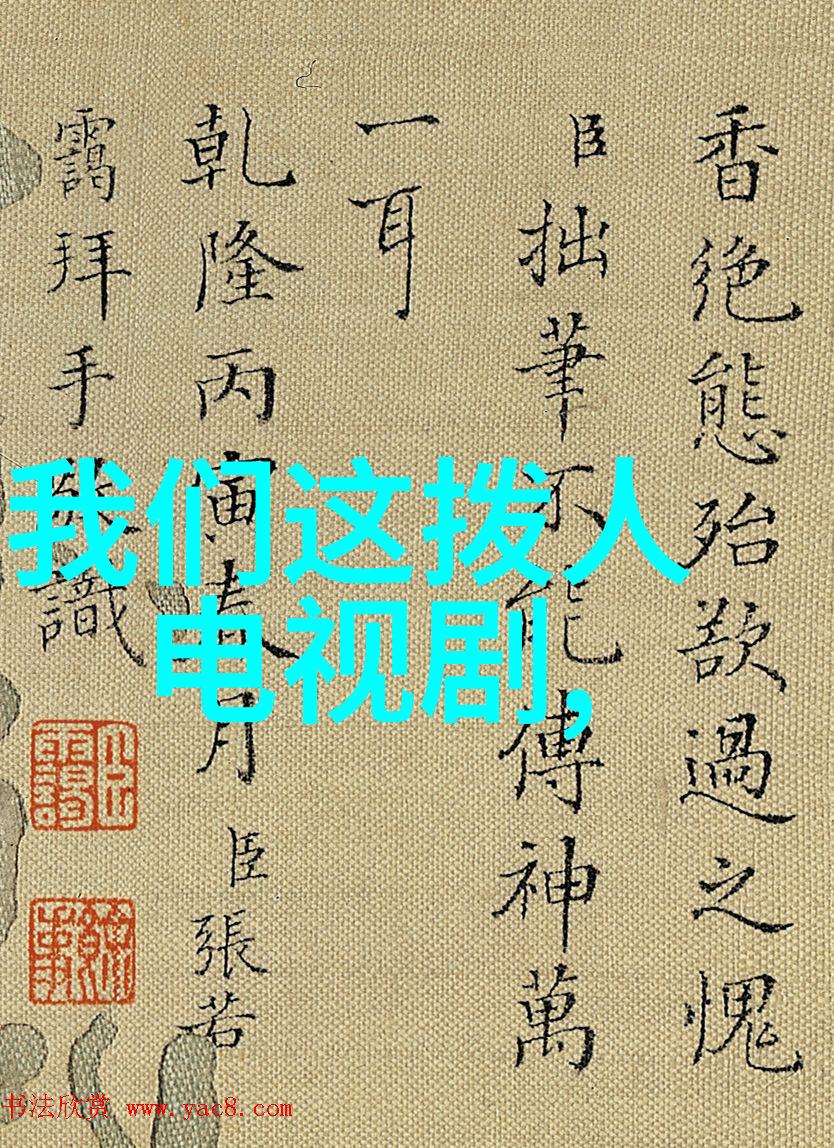 香絶態殆欲過之愧
臣拙筆不能傳神萬
一耳
乾隆丙寅春月臣張若
靄拜手識
我们这拨人
电视剧,
书法欣赏 www.yac8.com